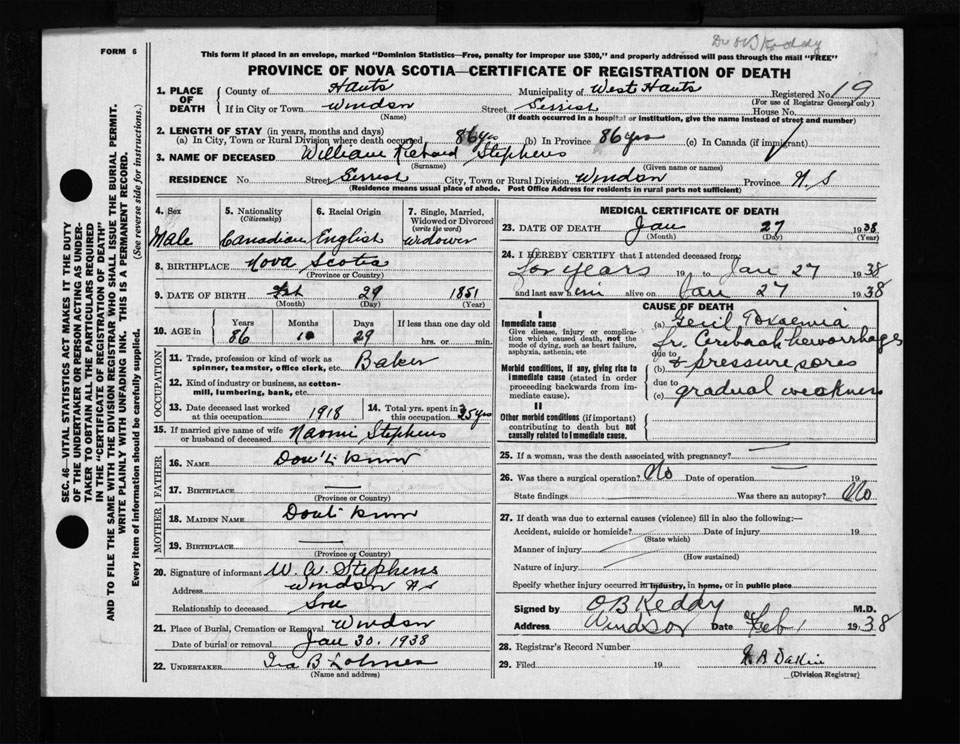 Dr O B Keddy
FORM 6
This form if placed in an envelope, marked "Dominion Statistics—Free, penalty for improper use $300," and properly addressed will pass through the mail "FREE"
PROVINCE OF NOVA SCOTIA—CERTIFICATE OF REGISTRATION OF DEATH
1. PLACE OF DEATH County of Hants Municipality of West Hants Registered No. 19
(For use of Registrar General only)
If in City or Town Windsor Street House No.
(Name) (If death occurred in a hospital or institution, give the name instead of street and number)
2. LENGTH OF STAY (in years, months and days)
(a) In City, Town or Rural Division where death occurred 86 yrs (b) In Province 86 yrs (c) In Canada (if immigrant)
3. NAME OF DECEASED William Richard Stephens
(Surname) (Given name or names)
RESIDENCE No. Street City, Town or Rural Division Windsor Province N.S
(Residence means usual place of abode. Post Office Address for residents in rural parts not sufficient)
4. Sex 5. Nationality (Citizenship) 6. Racial Origin 7. Single, Married, Widowed or Divorced (write the word)
Male Canadian English Widower
8. BIRTHPLACE Nova Scotia
(Province or Country)
9. DATE OF BIRTH 29 1851
(Month) (Day) (Year)
10. AGE in Years Months Days If less than one day old
86 10 29 hrs. or min.
OCCUPATION
11. Trade, profession or kind of work as spinner, teamster, office clerk, etc. Baker
12. Kind of industry or business, as cotton-mill, lumbering, bank, etc.
13. Date deceased last worked at this occupation 1918 14. Total yrs. spent in this occupation 35 yrs
15. If married give name of wife or husband of deceased Naomi Stephens
FATHER
16. NAME Don't know
17. BIRTHPLACE
(Province or Country)
MOTHER
18. MAIDEN NAME Don't know
19. BIRTHPLACE
(Province or Country)
20. Signature of informant W. W. Stephens
Address Windsor N S
Relationship to deceased Son
21. Place of Burial, Cremation or Removal Windsor
Date of burial or removal Jan 30. 1938
22. UNDERTAKER Ira B
(Name and address)
MEDICAL CERTIFICATE OF DEATH
23. DATE OF DEATH Jan 27 1938
(Month) (Day) (Year)
24. I HEREBY CERTIFY that I attended deceased from:
for years 19 to Jan 27 1938
and last saw him alive on Jan 27 1938
CAUSE OF DEATH
I
Immediate cause (a)
Give disease, injury or complication which caused death, not the mode of dying, such as heart failure, asphyxia, asthenia, etc
fr. Cerebral hemorrhage
due to
Morbid conditions, if any, giving rise to immediate cause (stated in order proceeding backwards from immediate cause). (b) & pressure sores
due to
(c) gradual weakness
II
Other morbid conditions (if important) contributing to death but not causally related to Immediate cause.
25. If a woman, was the death associated with pregnancy?
26. Was there a surgical operation? No Date of operation 19
State findings Was there an autopsy? No
27. If death was due to external causes (violence) fill in also the following:—
Accident, suicide or homicide? Date of injury 19
(State which)
Manner of injury
(How sustained)
Nature of injury
Specify whether injury occurred in industry, in home, or in public place
Signed by O B Keddy M.D.
Address Windsor Date Feb 1 1938
28. Registrar's Record Number
29. Filed 19
(Division Registrar)
SEC. 46—VITAL STATISTICS ACT MAKES IT THE DUTY
OF THE UNDERTAKER OR PERSON ACTING AS UNDERTAKER TO OBTAIN ALL THE PARTICULARS REQUIRED
IN THE "CERTIFICATE OF REGISTRATION OF DEATH"
AND TO FILE THE SAME WITH THE DIVISION REGISTRAR WHO SHALL ISSUE THE BURIAL PERMIT.
WRITE PLAINLY WITH UNFADING INK. THIS IS A PERMANENT RECORD.
Every item of information should be carefully supplied. (See reverse side for instructions.)